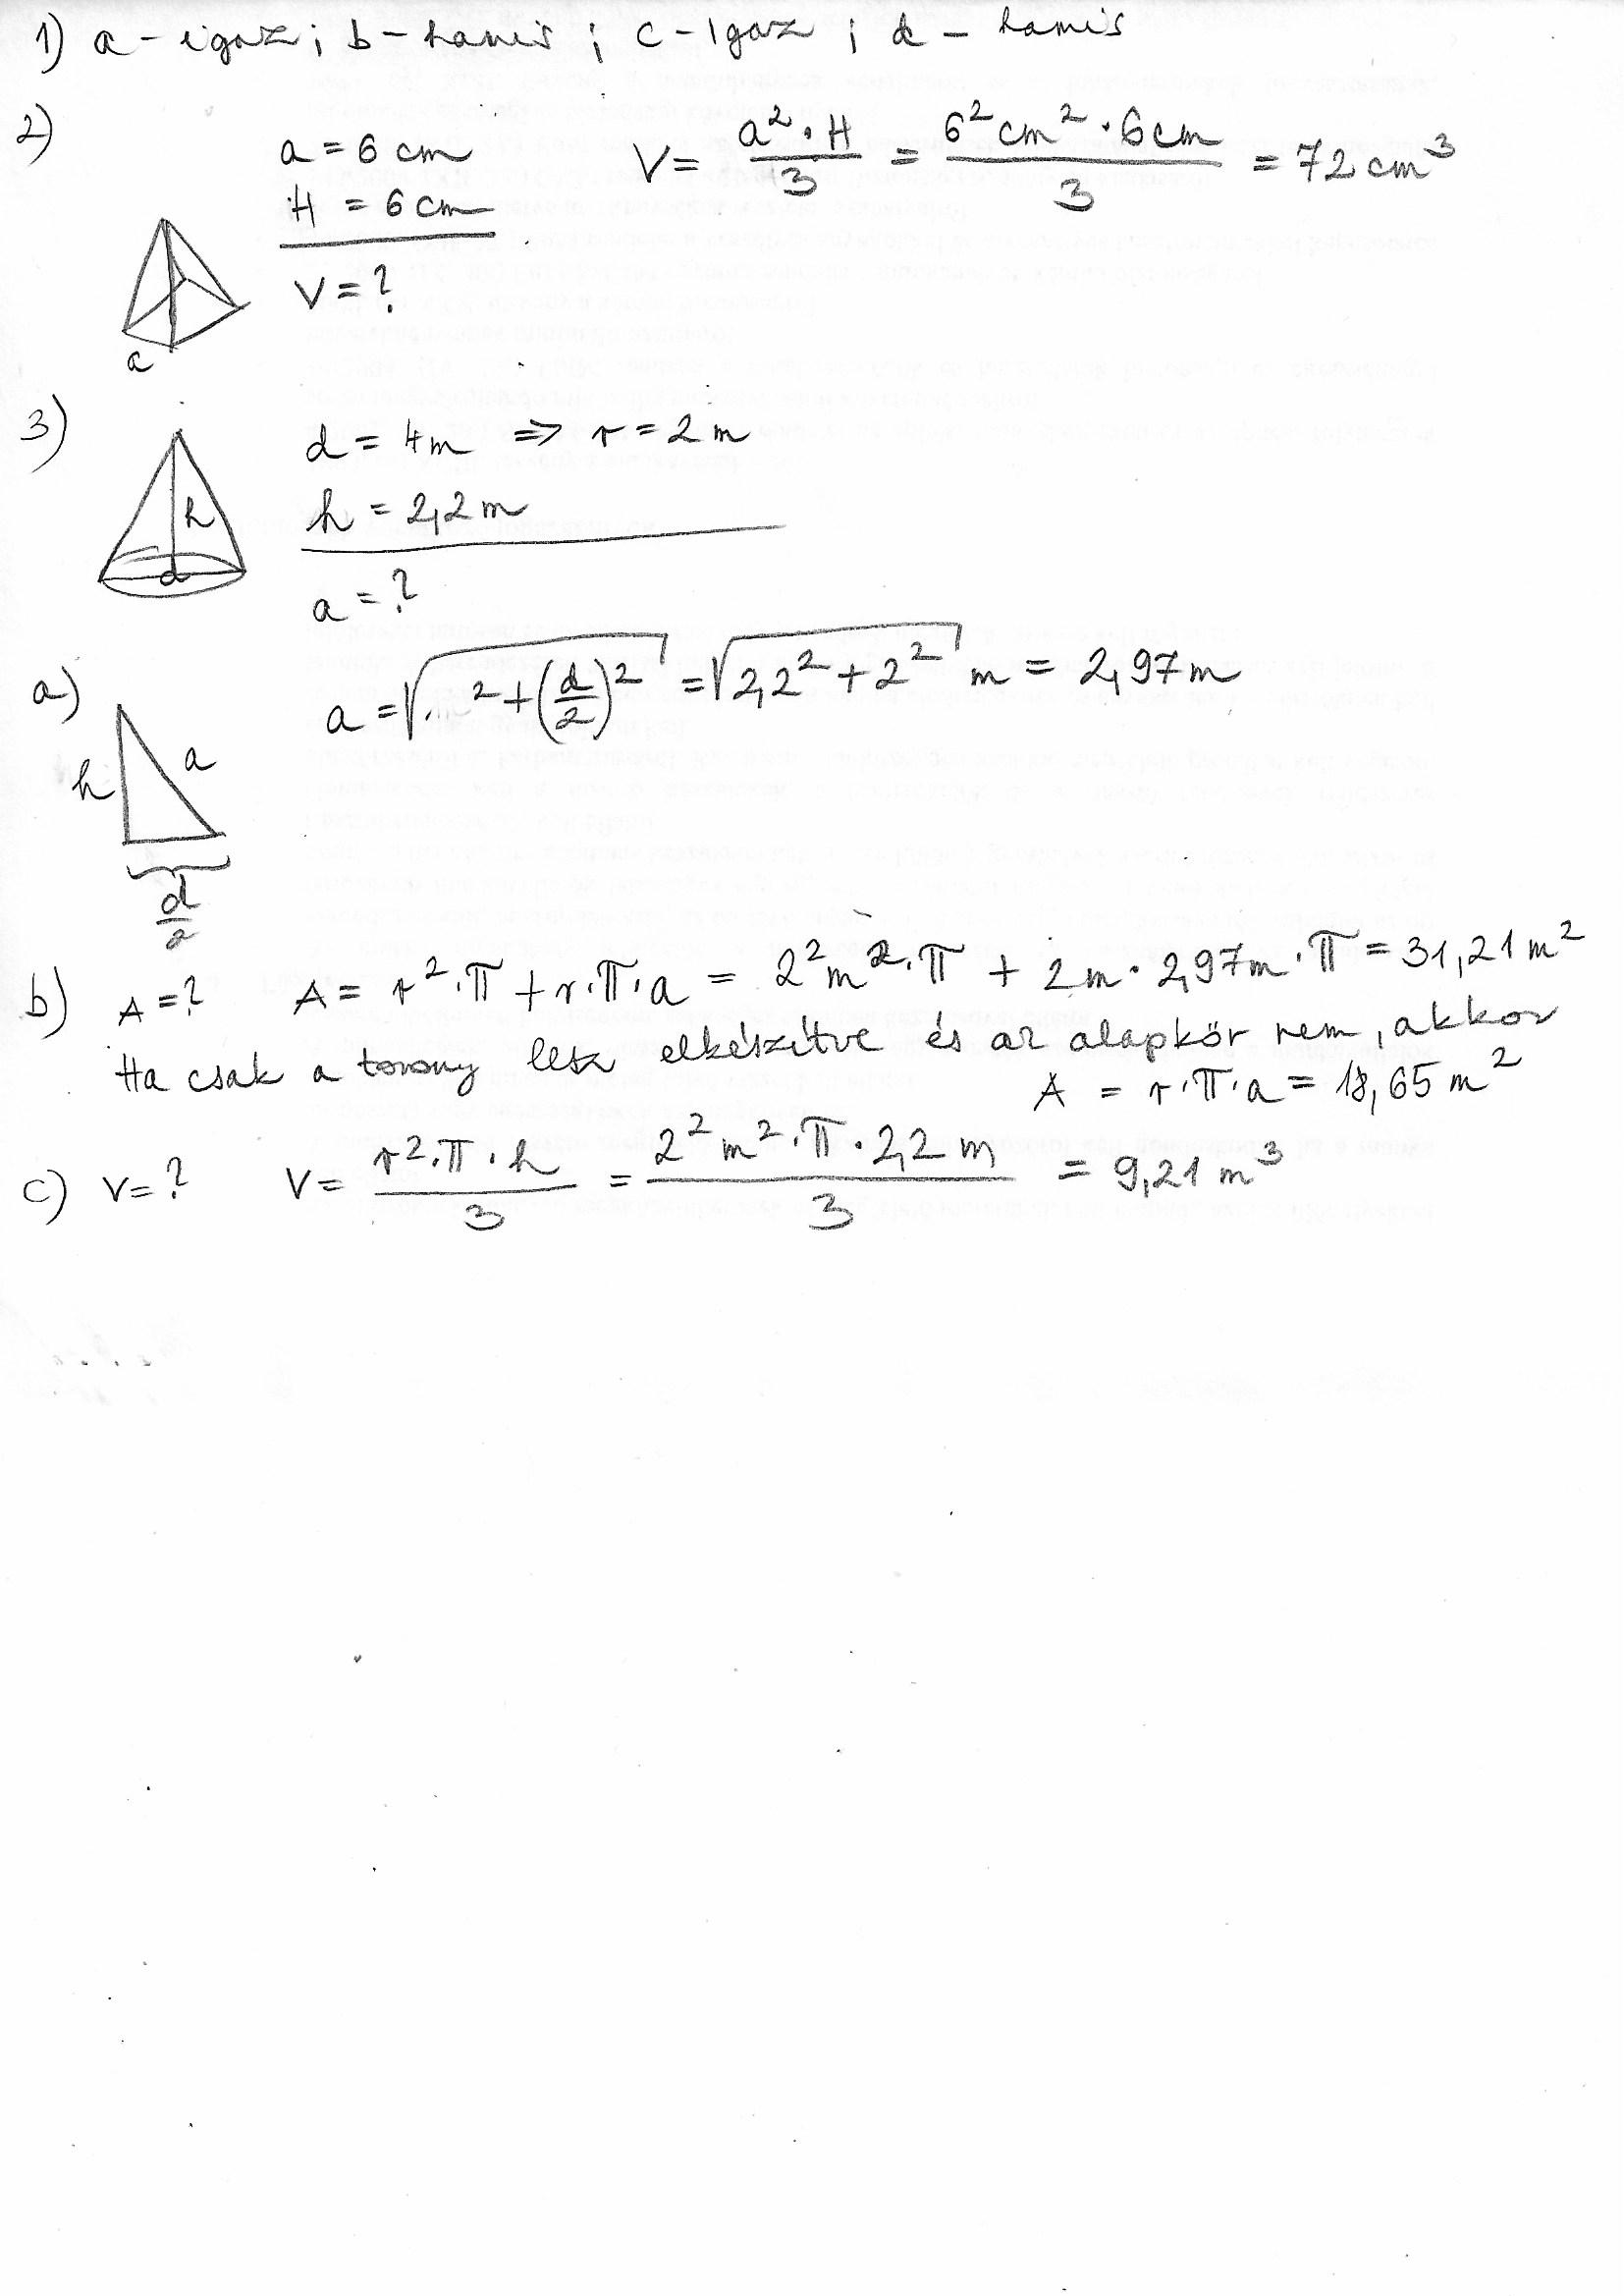 1) a - igaz ; b - hamis ; c - igaz ; d - hamis
2) a = 6 cm
H = 6 cm
V = ?
V = a² · H / 3 = 6² cm² · 6 cm / 3 = 72 cm³
a
3) d = 4 m ⇒ r = 2 m
h = 2,2 m
a = ?
h
d
a) a = √( ² + (d/2)²) = √(2,2² + 2²) m = 2,97 m
h
a
d/2
b) A = ? A = r² · π + r · π · a = 2² m² · π + 2 m · 2,97 m · π = 31,21 m²
Ha csak a torony lesz elkészítve és az alapkör nem, akkor
A = r · π · a = 18,65 m²
c) V = ? V = r² · π · h / 3 = 2² m² · π · 2,2 m / 3 = 9,21 m³